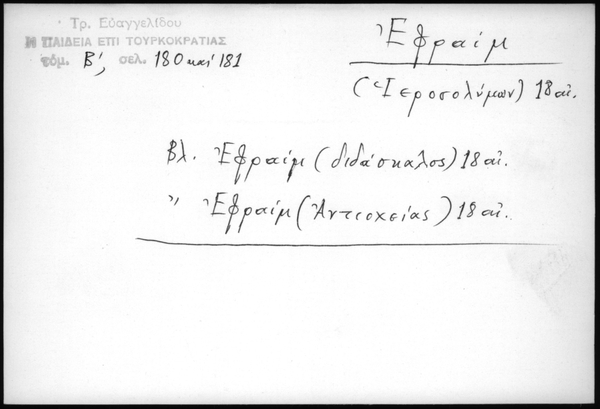 Τρ. Εὐαγγελίδου
Η ΠΑΙΔΕΙΑ ΕΠΙ ΤΟΥΡΚΟΚΡΑΤΙΑΣ
τόμ. Β', σελ. 180 καί 181
Ἐφραίμ
(Ἱεροσολύμων) 18 αἰ.
Βλ. Ἐφραίμ (διδάσκαλος) 18 αἰ.
" Ἐφραίμ (Ἀντιοχείας) 18 αἰ.